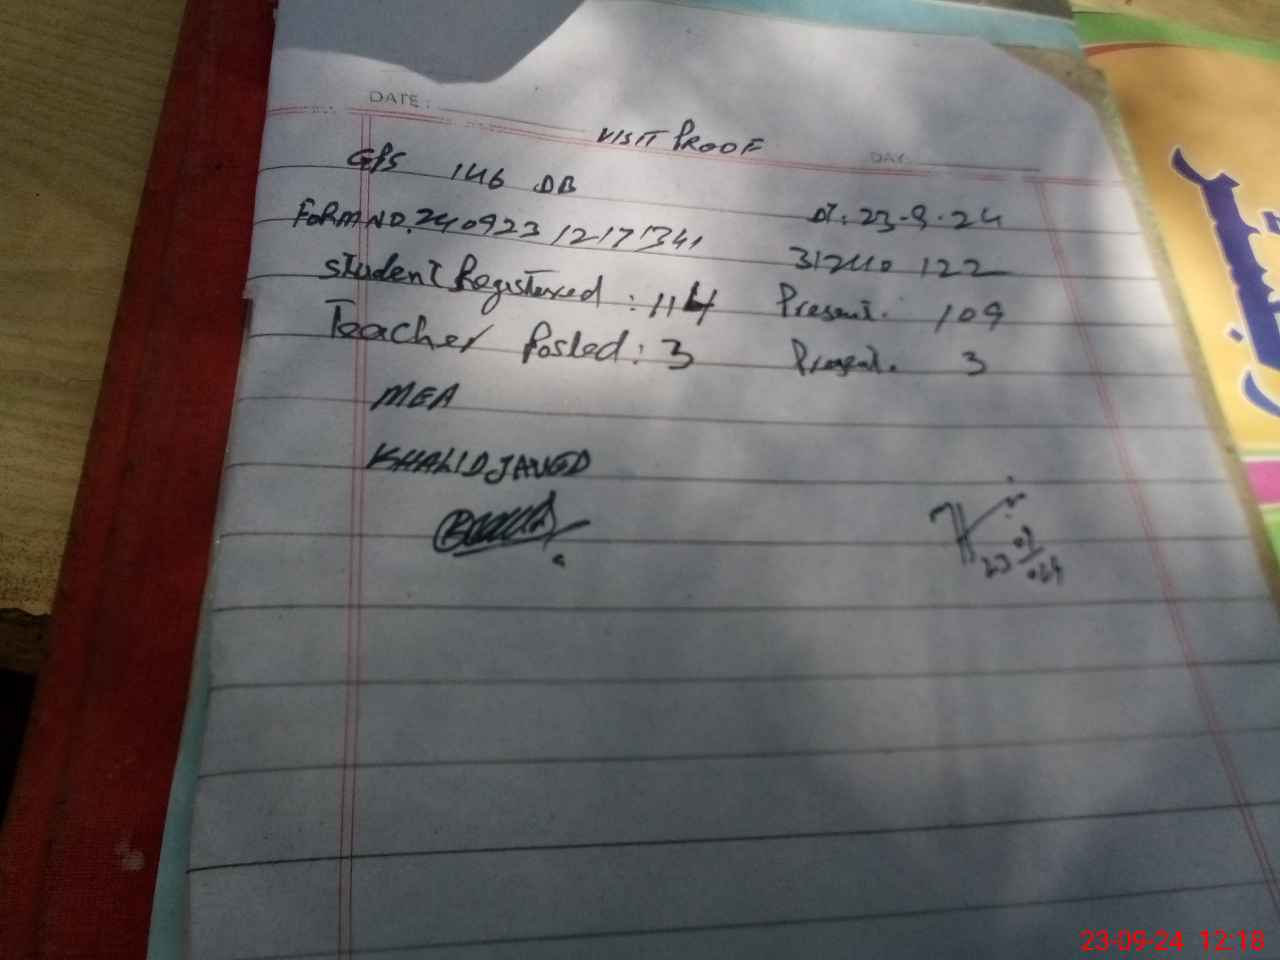 DATE:
VISIT PROOF
DAY
GPS 146 DB
DT. 23-9-24
FORM NO. 240923 1217341
31240 122
Student Registered : 114 Present. 109
Teacher Posted : 3 Present. 3
MEA
KHALID JAVED
23 09
024
23-09-24 12:18